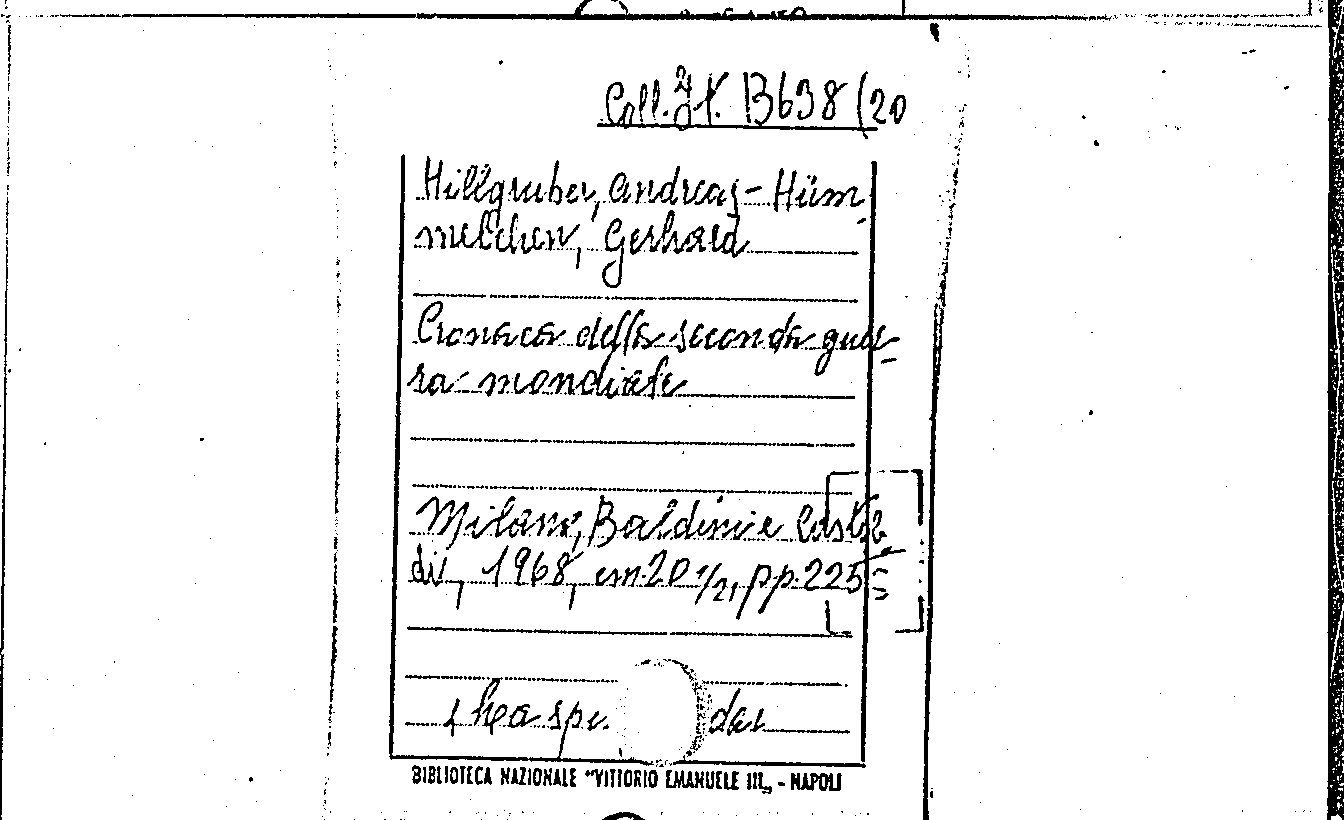 Coll. It. B638 (20
Hillgruber, Andreas - Hüm
melchen, Gerhard
Cronaca della seconda guer-
ra mondiale
Milano, Baldini e Casto
di, 1968, cm. 20 1/2, pp. 225
BIBLIOTECA NAZIONALE "VITTORIO EMANUELE III„ - NAPOLI